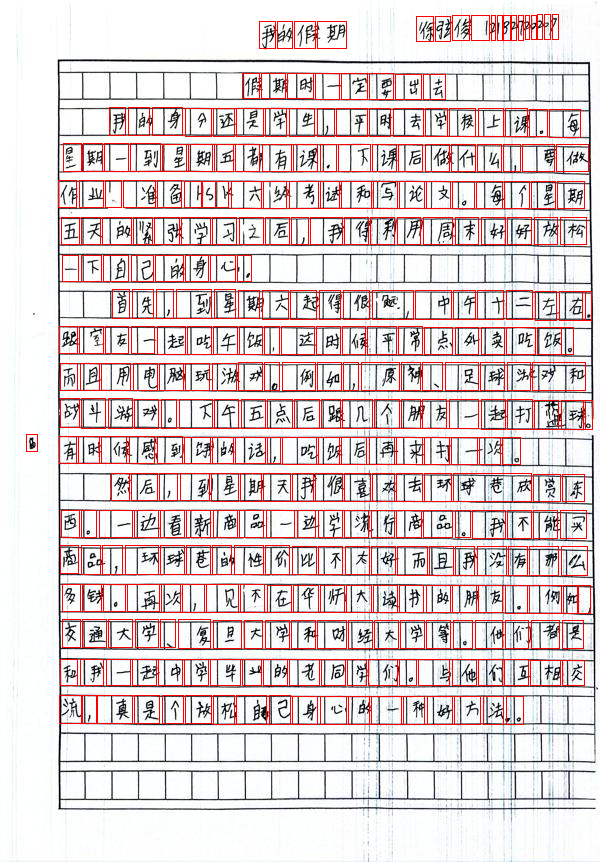 我的假期 徐弦俊 1213270207
假期时一定要出去
我的身分还是学生，平时去学校上课。每
星期一到星期五都有课。下课后做什么，要做
作业、准备HSK六级考试和写论文。每个星期
五天的紧张学习之后，我得利用周末好好放松
一下自己的身心。
首先，到星期六起得很晚，中午十二左右。
跟室友一起吃午饭，这时候平常点外卖吃饭。
而且用电脑玩游戏。例如，原神、足球游戏和
战斗游戏。下午五点后跟几个朋友一起打篮球。
有时候感到饿的话，吃饭后再来打一次。
然后，到星期天我很喜欢去环球巷欣赏东
西。一边看新商品一边学流行商品。我不能买
商品，环球巷的性价比不太好而且我没有那么
多钱。再次，见不在华师大读书的朋友。例如，
交通大学、复旦大学和财经大学等。他们都是
和我一起中学毕业的老同学们。与他们互相交
流，真是个放松自己身心的一种好方法。